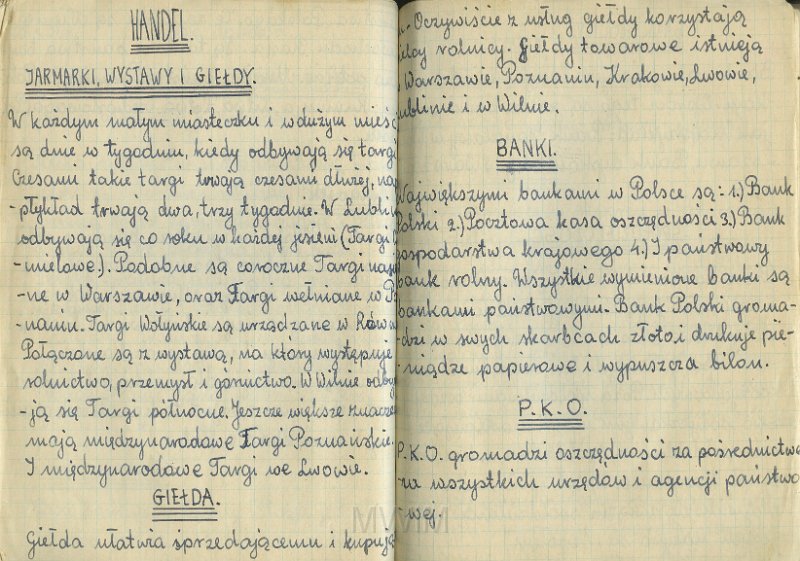 HANDEL.
JARMARKI, WYSTAWY I GIEŁDY.
W każdym małym miasteczku i w dużym mieś
są dnie w tygodniu, kiedy odbywają się targi
Czesami takie targi trwają czesami dłużej, na
-płykład trwają dwa, trzy tygodnie. W Lubli
odbywają się co roku w każdej jesieni (Targi
-mielowe). Podobne są coroczne Targi
-ne w Warszawie, oraz Targi wełniane w P
-naniu. Targi Wołyńskie są urządzane w Rów
Połączone są z wystawą, na który występuje
rolnictwo, przemysł i górnictwo. W Wilnie odby
-ją się Targi północne. Jeszcze większe znacze
mają międzynarodowe Targi Poznańskie.
I międzynarodowe Targi we Lwowie.
GIEŁDA.
Giełda ułatwia sprzedającemu i kupują
Oczywiście z usług giełdy korzystają
rolnicy. Giełdy towarowe istnieją
Warszawie, Poznaniu, Krakowie, Lwowie,
ublinie i w Wilnie.
BANKI.
Największymi bankami w Polsce są: 1.) Bank
Polski 2.) Pocztowa kasa oszczędności 3.) Bank
ospodarstwa krajowego 4.) I państwowy
bank rolny. Wszystkie wymienione banki są
bankami państwowymi. Bank Polski groma-
-dzi w swych skarbcach złoto, i drukuje pie-
-niądze papierowe i wypuszcza bilon.
P.K.O.
P.K.O. gromadzi oszczędności za pośrednictwe
-na wszystkich urzędów i agencji państwo
-wej.
MWM